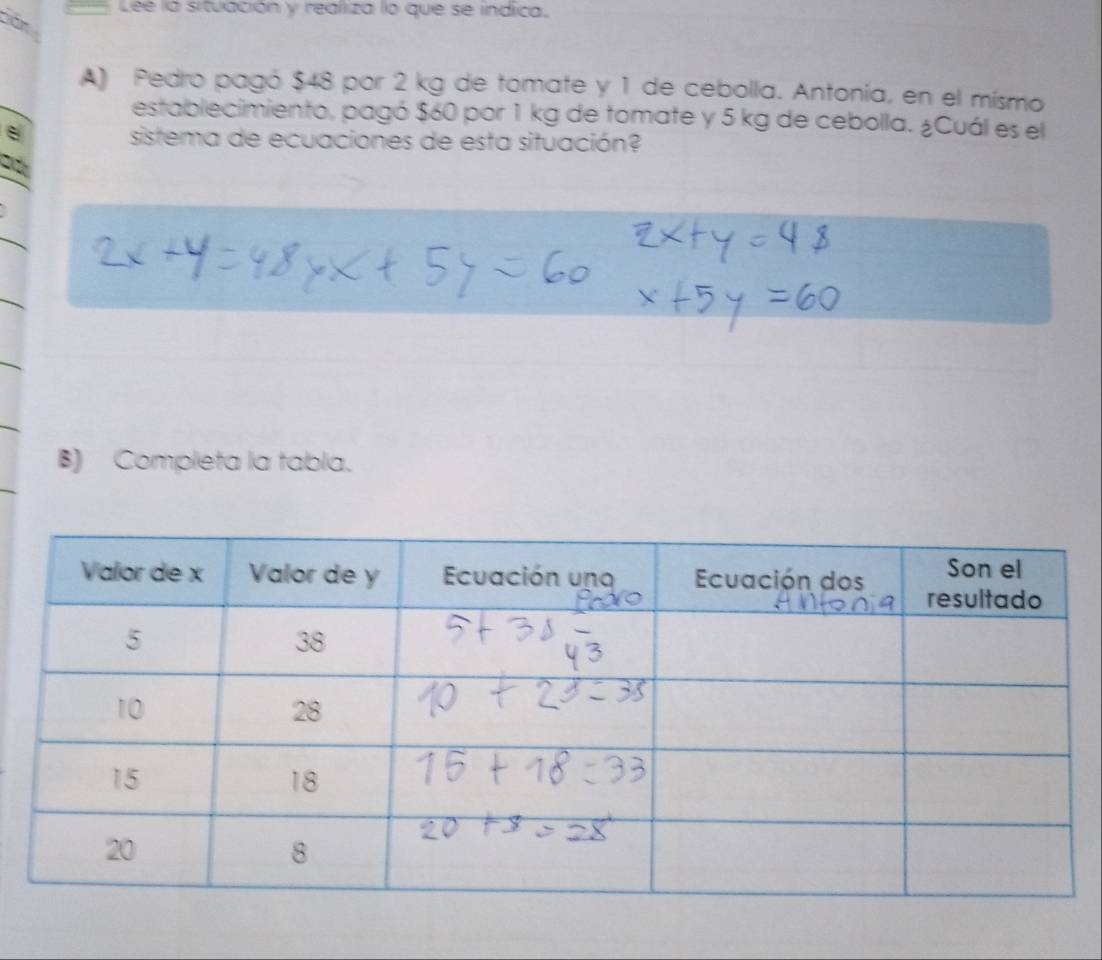 Lee la situación y realiza lo que se indica.
A) Pedro pagó $48 por 2 kg de tomate y 1 de cebolla. Antonia, en el mismo
establecimiento, pagó $60 por 1 kg de tomate y 5 kg de cebolla. ¿Cuál es el
sistema de ecuaciones de esta situación?
el
2x+y=48 y x+5y=60
2x+y=48
x+5y=60
B) Completa la tabla.
Valor de x Valor de y Ecuación una Ecuación dos Son el
resultado
Pedro Antonia
5 38 5+38=
43
10 28 10+28=38
15 18 15+18=33
20 8 20+8=28